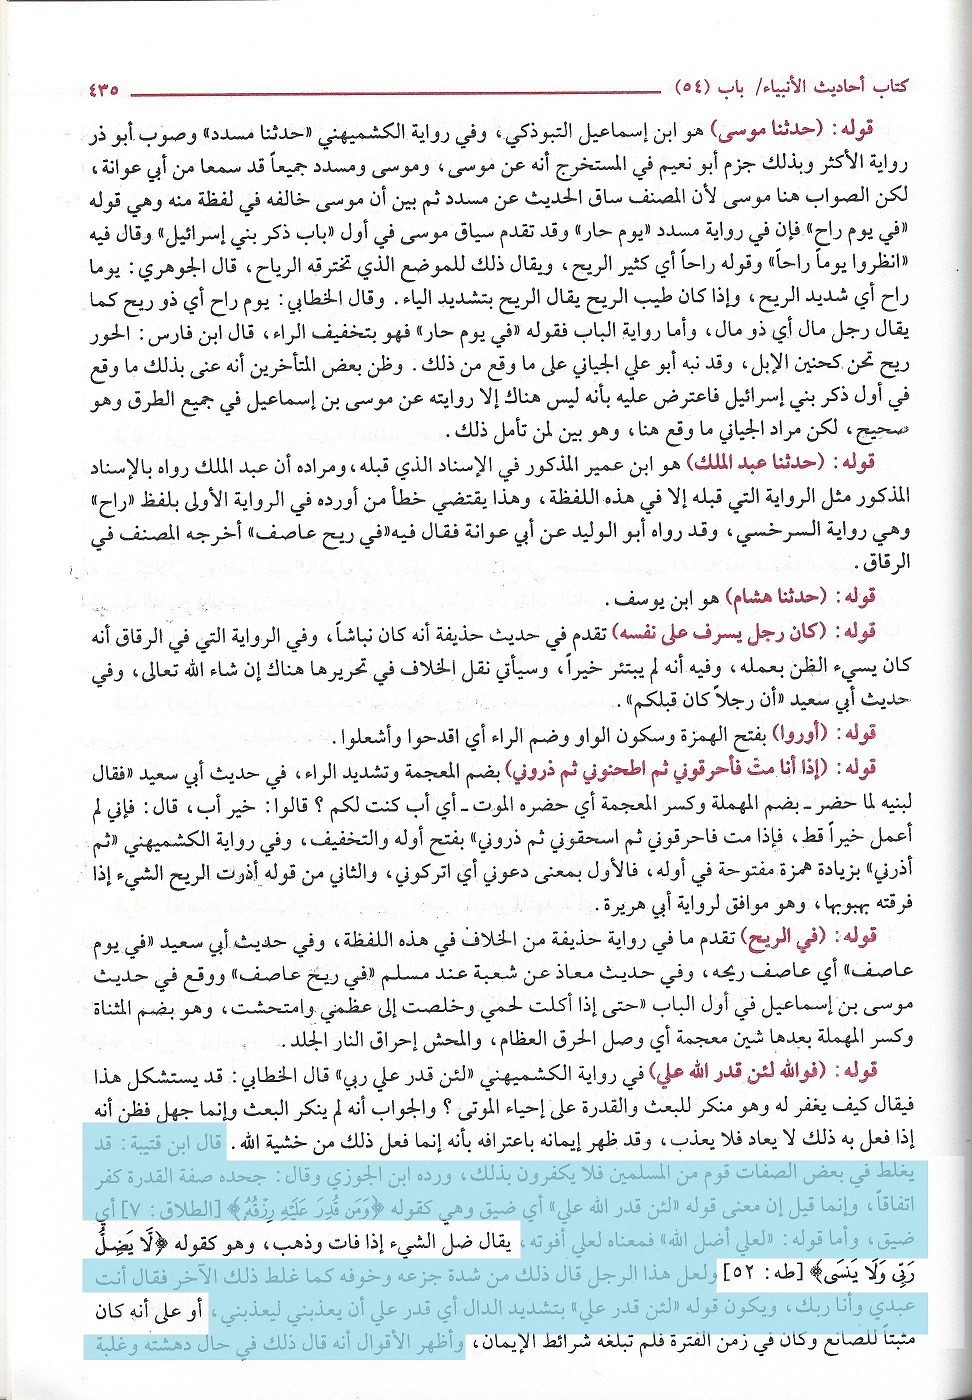 كتاب أحاديث الأنبياء/ باب (٥٤) ٤٣٥
قوله: (حدثنا موسى) هو ابن إسماعيل التبوذكي، وفي رواية الكشميهني «حدثنا مسدد» وصوب أبو ذر
رواية الأكثر وبذلك جزم أبو نعيم في المستخرج أنه عن موسى، وموسى ومسدد جميعاً قد سمعا من أبي عوانة،
لكن الصواب هنا موسى لأن المصنف ساق الحديث عن مسدد ثم بين أن موسى خالفه في لفظة منه وهي قوله
«في يوم راح» فإن في رواية مسدد «يوم حار» وقد تقدم سياق موسى في أول «باب ذكر بني إسرائيل» وقال فيه
«انظروا يوماً راحاً» وقوله راحاً أي كثير الريح، ويقال ذلك للموضع الذي تخترقه الرياح، قال الجوهري: يوما
راح أي شديد الريح، وإذا كان طيب الريح يقال الريح بتشديد الياء. وقال الخطابي: يوم راح أي ذو ريح كما
يقال رجل مال أي ذو مال، وأما رواية الباب فقوله «في يوم حار» فهو بتخفيف الراء، قال ابن فارس: الحور
ريح تحن كحنين الإبل، وقد نبه أبو علي الجياني على ما وقع من ذلك. وظن بعض المتأخرين أنه عنى بذلك ما وقع
في أول ذكر بني إسرائيل فاعترض عليه بأنه ليس هناك إلا روايته عن موسى بن إسماعيل في جميع الطرق وهو
صحيح، لكن مراد الجياني ما وقع هنا، وهو بين لمن تأمل ذلك.
قوله: (حدثنا عبد الملك) هو ابن عمير المذكور في الإسناد الذي قبله،ومراده أن عبد الملك رواه بالإسناد
المذكور مثل الرواية التي قبله إلا في هذه اللفظة، وهذا يقتضي خطأ من أورده في الرواية الأولى بلفظ «راح»
وهي رواية السرخسي، وقد رواه أبو الوليد عن أبي عوانة فقال فيه«في ريح عاصف» أخرجه المصنف في
الرقاق.
قوله: (حدثنا هشام) هو ابن يوسف.
قوله: (كان رجل يسرف على نفسه) تقدم في حديث حذيفة أنه كان نباشاً، وفي الرواية التي في الرقاق أنه
كان يسيء الظن بعمله، وفيه أنه لم يبتئر خيراً، وسيأتي نقل الخلاف في تحريرها هناك إن شاء الله تعالى، وفي
حديث أبي سعيد «أن رجلاً كان قبلكم».
قوله: (أوروا) بفتح الهمزة وسكون الواو وضم الراء أي اقدحوا وأشعلوا.
قوله: (إذا أنا متّ فأحرقوني ثم اطحنوني ثم ذروني) بضم المعجمة وتشديد الراء، في حديث أبي سعيد «فقال
لبنيه لما حضر ـ بضم المهملة وكسر المعجمة أي حضره الموت ـ أي أب كنت لكم؟ قالوا: خير أب، قال: فإني لم
أعمل خيراً قط، فإذا مت فاحرقوني ثم اسحقوني ثم ذروني» بفتح أوله والتخفيف، وفي رواية الكشميهني «ثم
أذرني» بزيادة همزة مفتوحة في أوله، فالأول بمعنى دعوني أي اتركوني، والثاني من قوله أذرت الريح الشيء إذا
فرقته بهبوبها، وهو موافق لرواية أبي هريرة.
قوله: (في الريح) تقدم ما في رواية حذيفة من الخلاف في هذه اللفظة، وفي حديث أبي سعيد «في يوم
عاصف» أي عاصف ريحه، وفي حديث معاذ عن شعبة عند مسلم «في ريح عاصف» ووقع في حديث
موسى بن إسماعيل في أول الباب «حتى إذا أكلت لحمي وخلصت إلى عظمي وامتحشت، وهو بضم المثناة
وكسر المهملة بعدها شين معجمة أي وصل الحرق العظام، والمحش إحراق النار الجلد.
قوله: (فوالله لئن قدر الله علي) في رواية الكشميهني «لئن قدر علي ربي» قال الخطابي: قد يستشكل هذا
فيقال كيف يغفر له وهو منكر للبعث والقدرة على إحياء الموتى؟ والجواب أنه لم ينكر البعث وإنما جهل فظن أنه
إذا فعل به ذلك لا يعاد فلا يعذب، وقد ظهر إيمانه باعترافه بأنه إنما فعل ذلك من خشية الله. قال ابن قتيبة: قد
يغلط في بعض الصفات قوم من المسلمين فلا يكفرون بذلك، ورده ابن الجوزي وقال: جحده صفة القدرة كفر
اتفاقاً، وإنما قيل إن معنى قوله «لئن قدر الله علي» أي ضيق وهي كقوله ﴿وَمَن قُدِرَ عَلَيْهِ رِزْقُهُ﴾ [الطلاق: ٧] أي
ضيق، وأما قوله: «لعلي أضل الله» فمعناه لعلي أفوته، يقال ضل الشيء إذا فات وذهب، وهو كقوله ﴿لَّا يَضِلُّ
رَبِّى وَلَا يَنسَى﴾ [طه: ٥٢] ولعل هذا الرجل قال ذلك من شدة جزعه وخوفه كما غلط ذلك الآخر فقال أنت
عبدي وأنا ربك، ويكون قوله «لئن قدر علي» بتشديد الدال أي قدر علي أن يعذبني ليعذبني، أو على أنه كان
مثبتاً للصانع وكان في زمن الفترة فلم تبلغه شرائط الإيمان، وأظهر الأقوال أنه قال ذلك في حال دهشته وغلبة